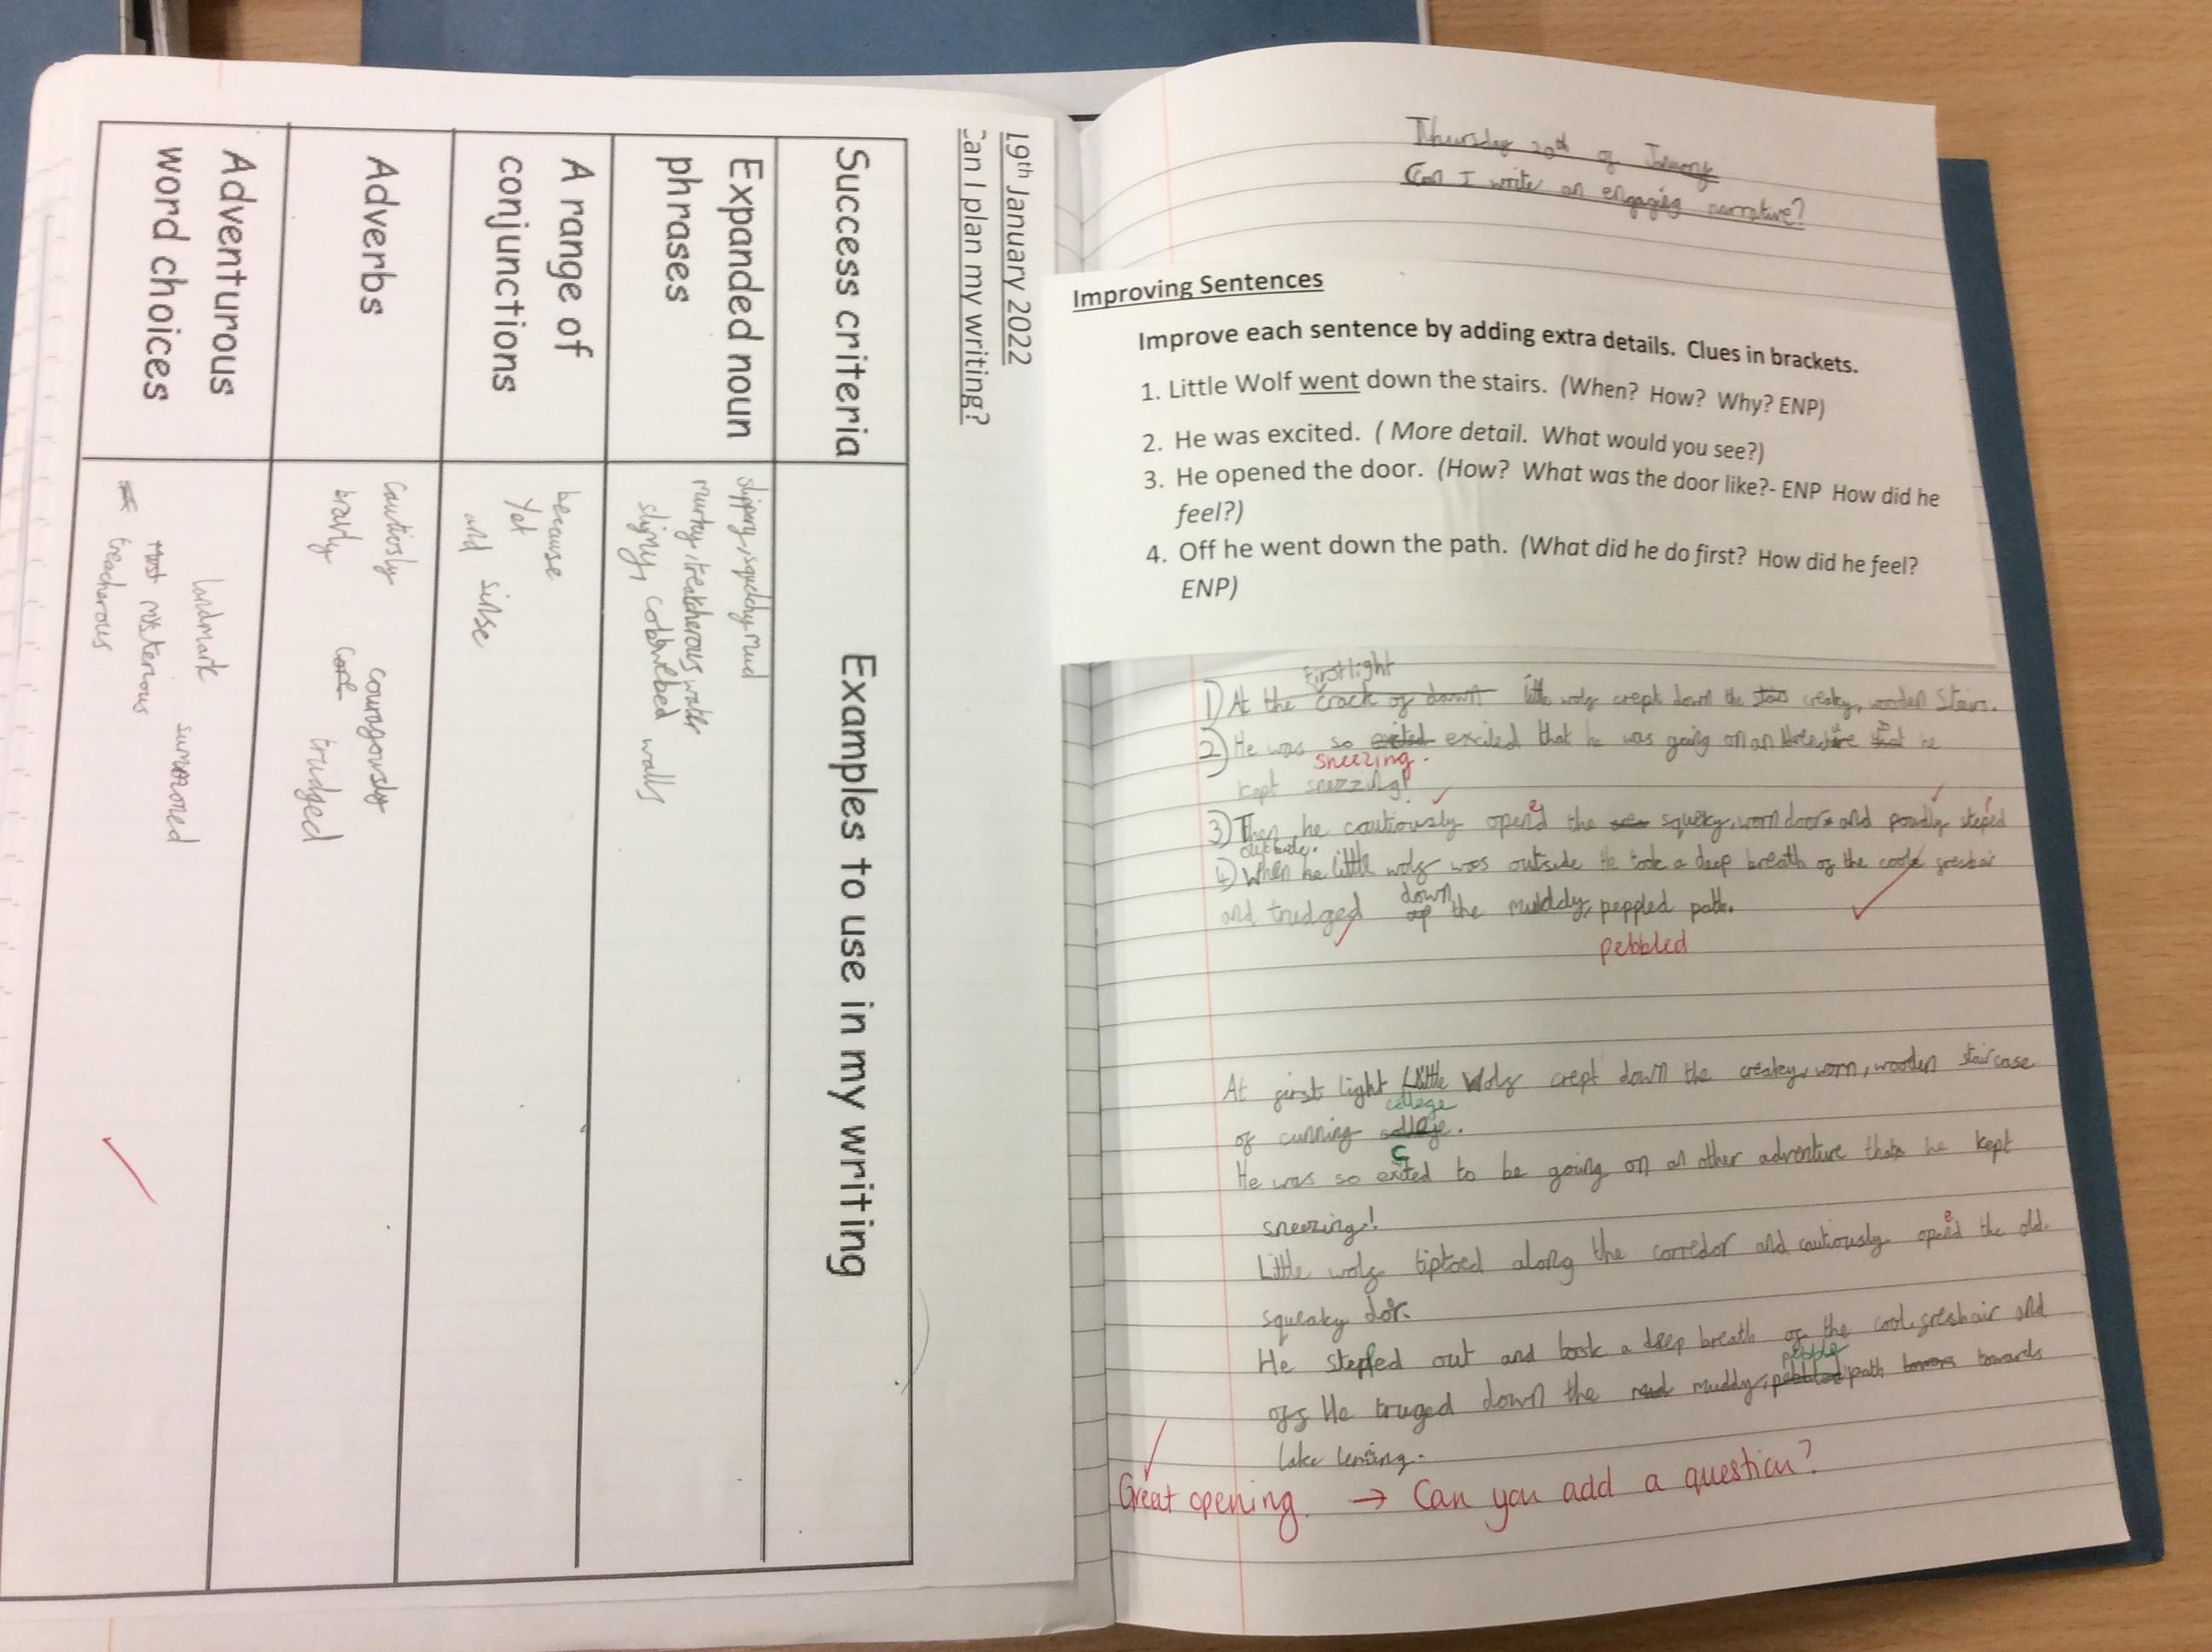 19th January 2022
Can I plan my writing?
Success criteria
Examples to use in my writing
Expanded noun
phrases
slippery, squelchy mud
murky, treatcherous water
slimy, cobbwebed walls
A range of
conjunctions
because
Yet
and sinse
Adverbs
Cautiosly couragously
bravly trudged
Adventurous
word choices
landmark summoned
most misterious
treacherous
Thursday 20th of January
Can I write an engaging narrative?
Improving Sentences
Improve each sentence by adding extra details. Clues in brackets.
1. Little Wolf went down the stairs. (When? How? Why? ENP)
2. He was excited. ( More detail. What would you see?)
3. He opened the door. (How? What was the door like?- ENP How did he
feel?)
4. Off he went down the path. (What did he do first? How did he feel?
ENP)
First light
1) At the crack of dawn little wolf crept down the stais creaky, wooden Stairs.
2) He was so excited that he was going on an he
sneezing.
kept snezzing!
3) Then, he cautiously opened the squeky, worn door and proudly steped
outside.
4) When he little wolf was outside He took a deep breath of the cool freshair
down
and trudged up the muddy, peppled path.
pebbled
At first light Little Wolf crept down the creaky, worn, wooden staircase
college
of cunning
c
He was so exited to be going on an other adventure that he kept
sneezing!
Little wolf tiptoed along the corredor and cautiously opened the old
squeaky dor.
He stepped out and took a deep breath of the cool freshair and
pebble
off He truged down the mud muddy, pebbled path towars towards
lake lemming.
Great opening. → Can you add a question?